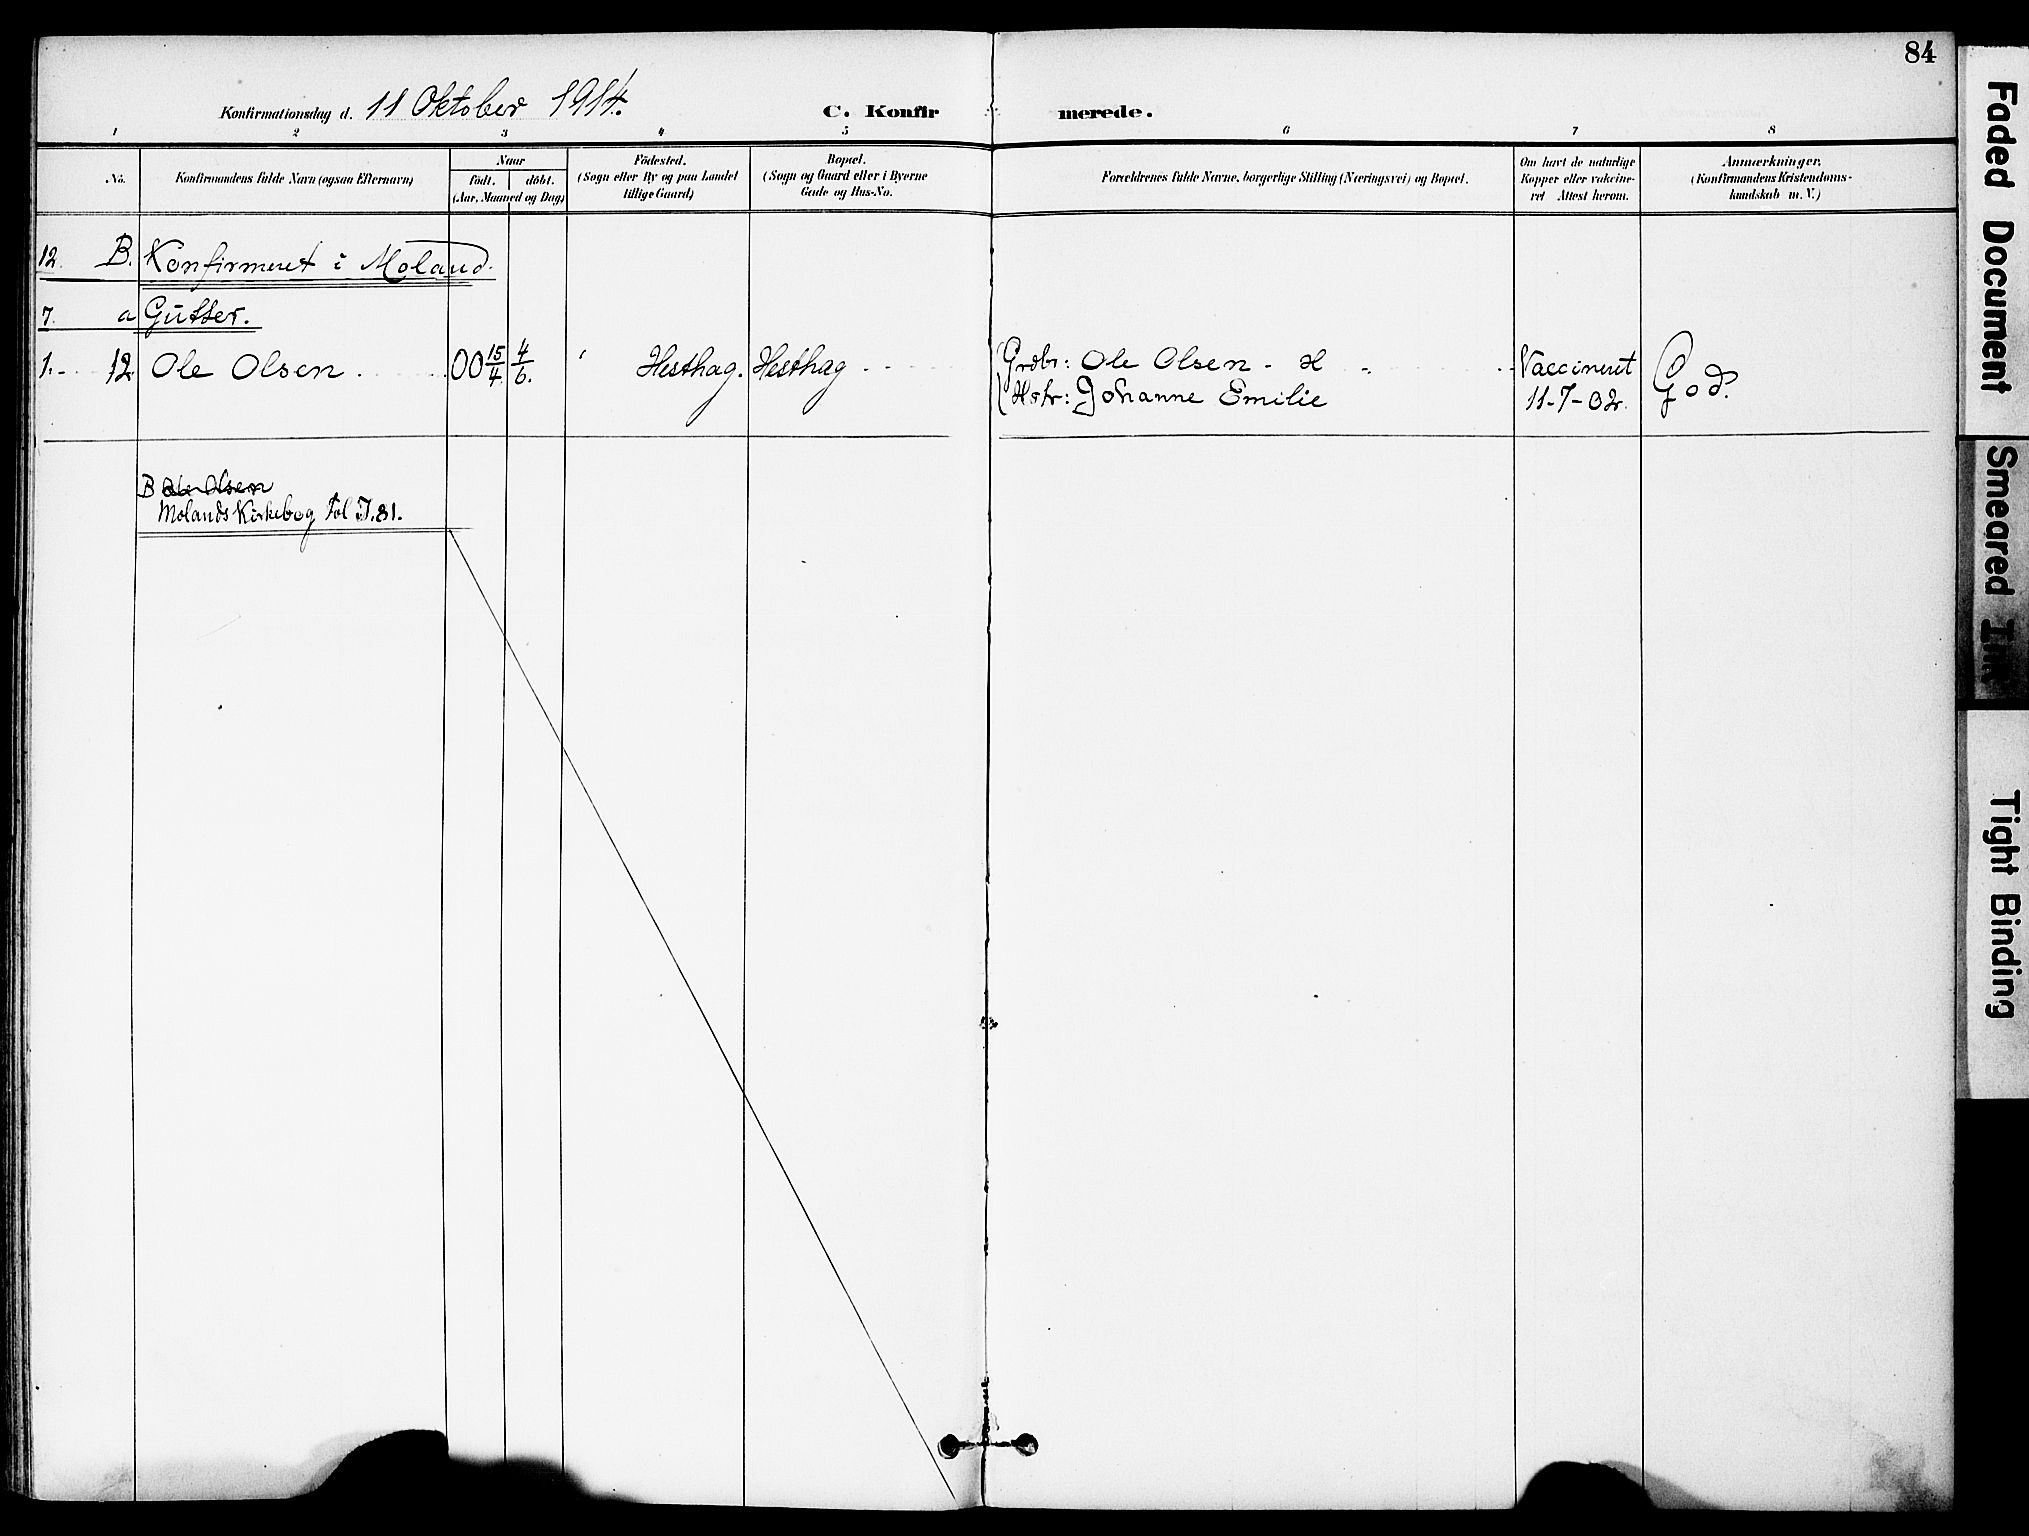 84
Konfirmationsdag d. 11 Oktober 1914.
C. Konfirmerede.
1 2 3 4 5 6 7 8
No.
Konfirmandens fulde Navn (ogsaa Efternavn)
Naar
født. døbt.
(Aar, Maaned og Dag)
Fødested.
(Sogn eller By og paa Landet
tillige Gaard)
Bopæl.
(Sogn og Gaard eller i Byerne
Gade og Hus-No.
Forældrenes fulde Navne, borgerlige Stilling (Næringsvei) og Bopæl.
Om havt de naturlige
Kopper eller vakcine-
ret Attest herom.
Anmærkninger.
(Konfirmandens Kristendoms-
kundskab m. V.)
12. B. Konfirmeret i Moland.
7. a Gutter.
1. 12. Ole Olsen 00 15/4 4/6. Hesthag. Hesthag Grdbr: Ole Olsen - H Vaccineret God.
Hstr: Johanne Emilie 11-7-02.
B Ole Olsen
Molands Kirkebog fol 81.
Faded Document
Smeared Ink
Tight Binding